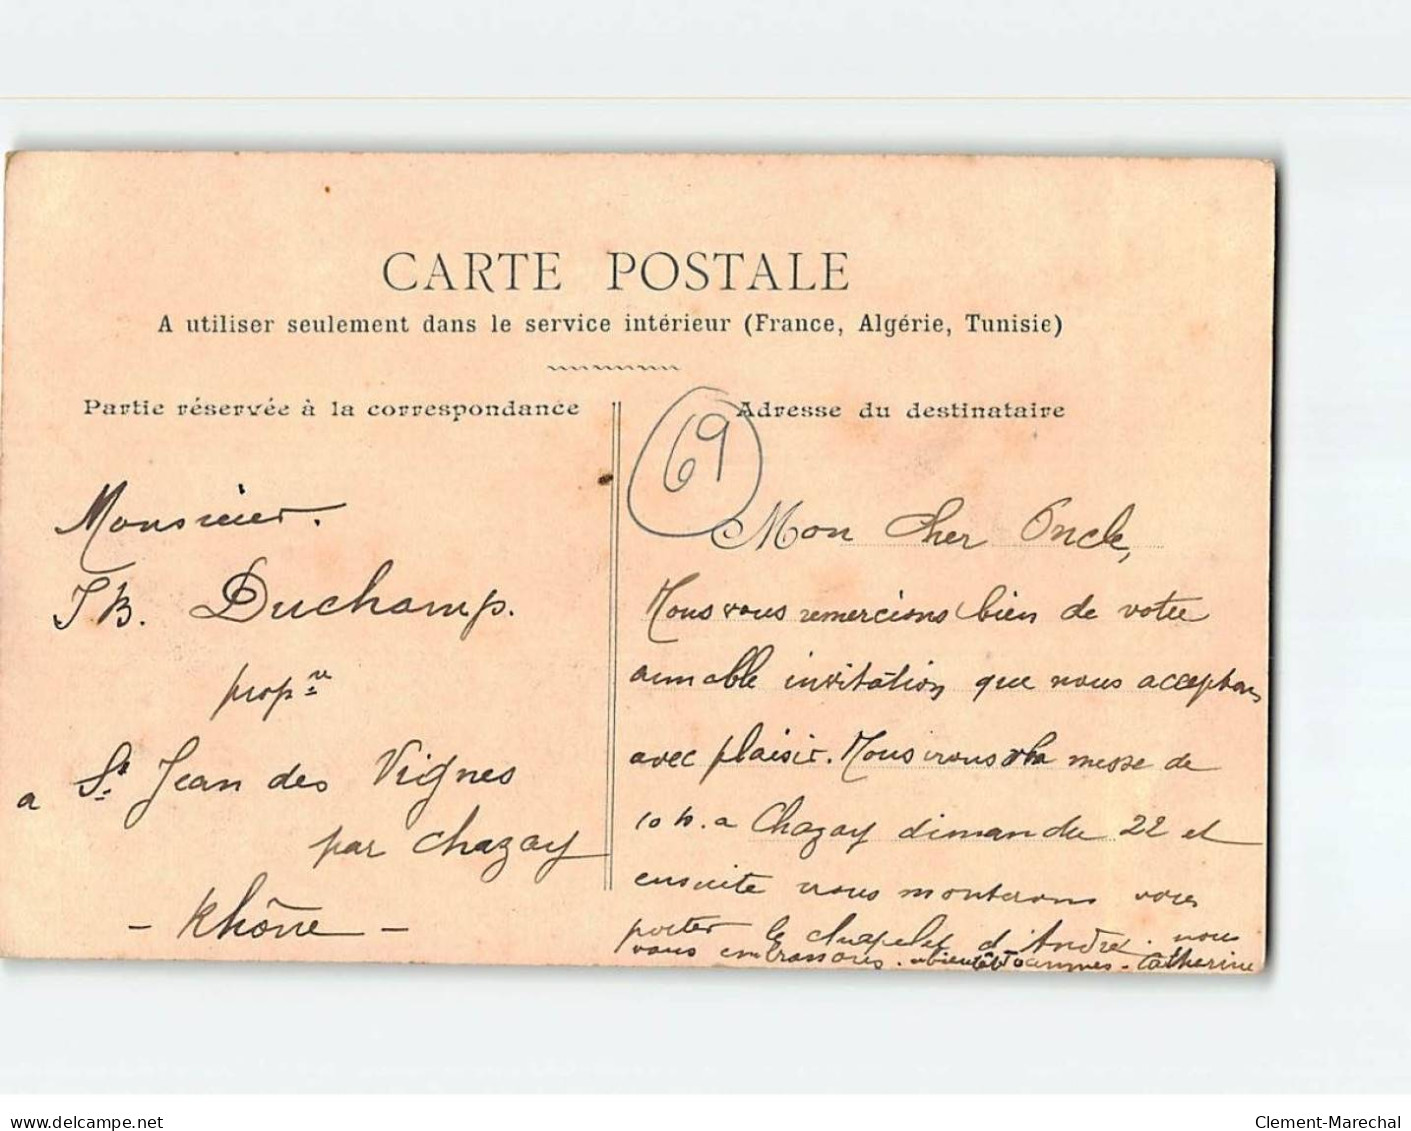 CARTE POSTALE
A utiliser seulement dans le service intérieur (France, Algérie, Tunisie)
Partie réservée à la correspondance
Monsieur.
JB. Duchamp.
propre
a St Jean des Vignes
par Chazay
- Rhône -
69
Adresse du destinataire
Mon Cher Oncle,
Nous vous remercions bien de votre
aimable invitation que nous acceptons
avec plaisir. Nous irons a la messe de
10 h. a Chazay dimanche 22 et
ensuite nous monterons vous
porter le chapelet d'André. nous
vous embrassons. a bientôt Joannes - Catherine
www.delcampe.net
Clement-Marechal